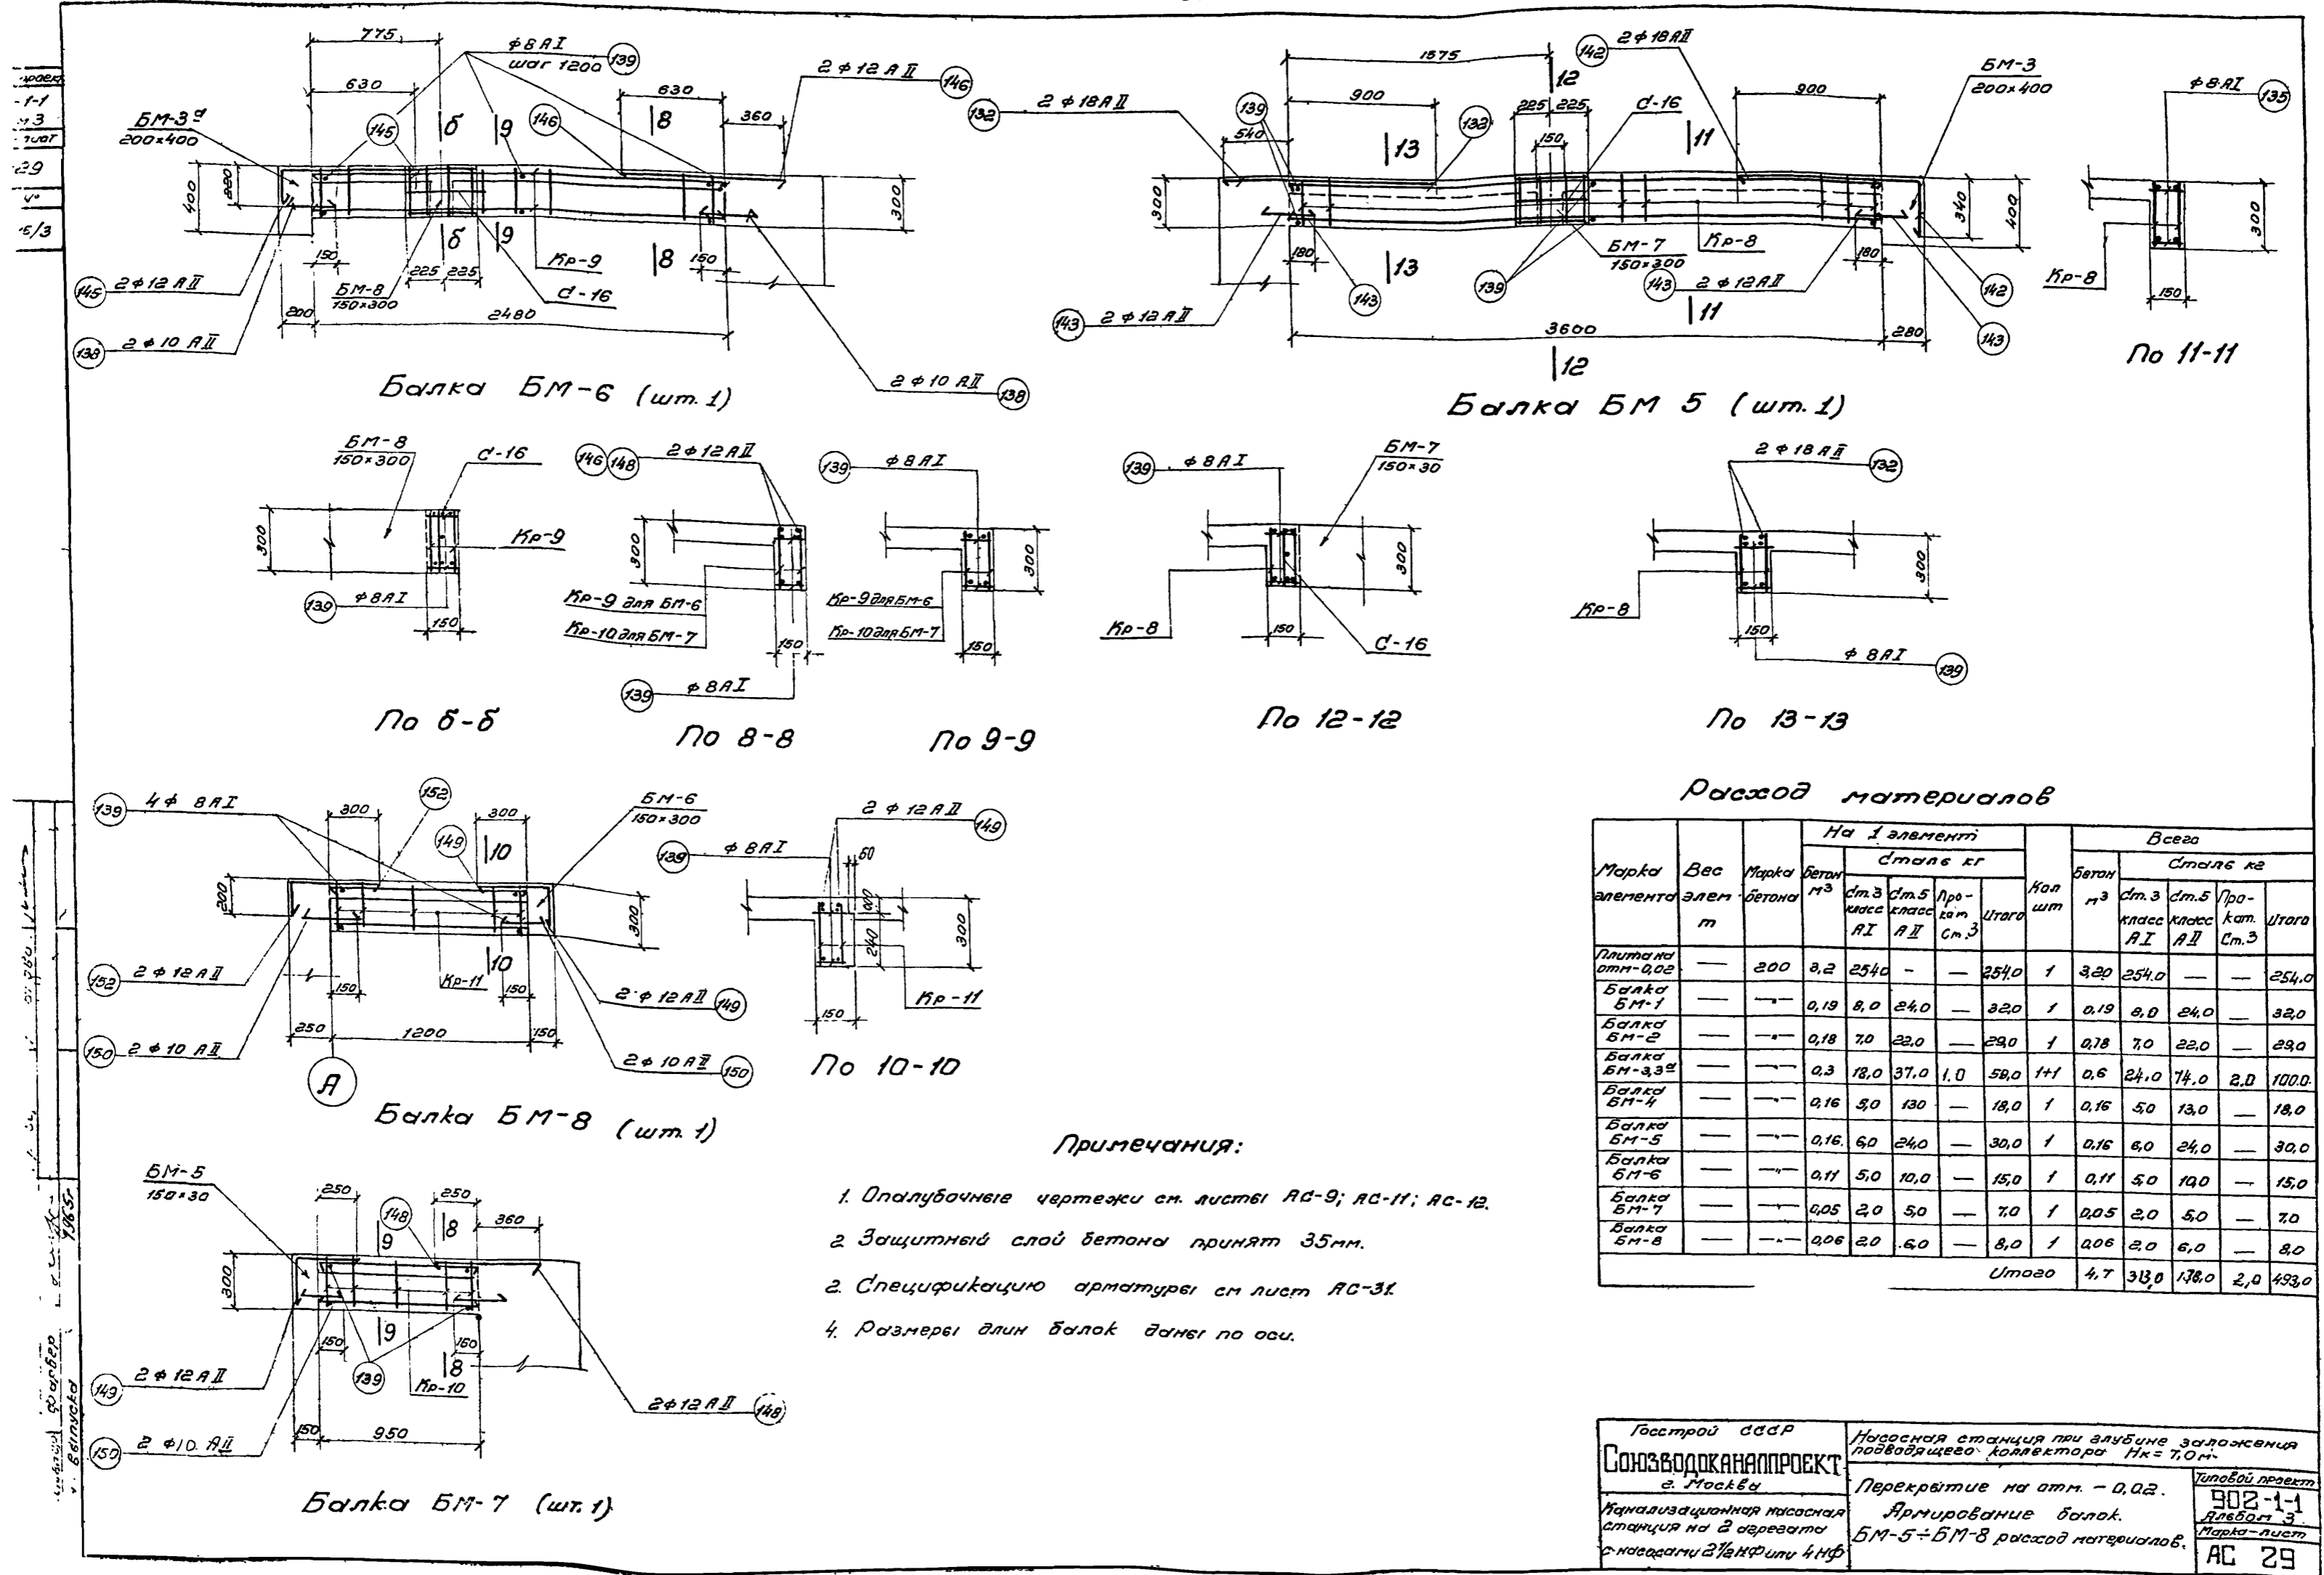 775
ф 8 AI
шаг 1200 139
2 ф 12 AII 146
630
630
360
БМ-3а
200×400
145
б
9
146
8
400
220
300
150
225 225
Кр-9
150
145 2 ф 12 AII
БМ-8
150×300
С-16
200
2480
138 2 ф 10 AII
2 ф 10 AII 138
Балка БМ-6 (шт. 1)
1575
142 2 ф 18 AII
12
БМ-3
200×400
132 2 ф 18 AII
139
900
225 225
С-16
900
540
13
132
150
11
300
340
400
180
БМ-7
150×300
Кр-8
180
143
139
143 2 ф 12 AII
142
143 2 ф 12 AII
3600
280
143
12
Балка БМ 5 (шт. 1)
ф 8 AI 135
300
Кр-8
150
По 11-11
БМ-8
150×300
С-16
300
Кр-9
139 ф 8 AI
150
По б-б
146 148 2 ф 12 AII
300
Кр-9 для БМ-6
Кр-10 для БМ-7
150
139 ф 8 AI
По 8-8
139 ф 8 AI
300
Кр-9 для БМ-6
Кр-10 для БМ-7
150
По 9-9
139 ф 8 AI
БМ-7
150×30
300
Кр-8
150
С-16
По 12-12
2 ф 18 AII 132
300
Кр-8
150
ф 8 AI 139
По 13-13
139 4 ф 8 AI
300
152
300
БМ-6
150×300
149
10
200
300
152 2 ф 12 AII
150
Кр-11
150
2 ф 12 AII 149
250
1200
150
150 2 ф 10 AII
2 ф 10 AII 150
А
Балка БМ-8 (шт. 1)
2 ф 12 AII 149
139 ф 8 AI
60
240
300
150
Кр-11
По 10-10
БМ-5
150×30
250
250
148
9
8
360
300
150
139
Кр-10
150
149 2 ф 12 AII
2 ф 12 AII 148
150
950
150 2 ф 10 AII
Балка БМ-7 (шт. 1)
Примечания:
1. Опалубочные чертежи см. листы АС-9; АС-11; АС-12.
2. Защитный слой бетона принят 35мм.
2. Спецификацию арматуры см лист АС-31.
4. Размеры длин балок даны по оси.
Расход материалов
Марка элемента Вес элем-т Марка бетона На 1 элемент Кол шт Всего
Бетон м³ Сталь кг Бетон м³ Сталь кг
Ст.3 класс AI Ст.5 класс AII Про-кат Ст.3 Итого Ст.3 класс AI Ст.5 класс AII Про-кат. Ст.3 Итого
Плита на отм-0,02 — 200 3,2 254,0 - — 254,0 1 3,20 254,0 — — 254,0
Балка БМ-1 — —"— 0,19 8,0 24,0 — 32,0 1 0,19 8,0 24,0 — 32,0
Балка БМ-2 — —"— 0,18 7,0 22,0 — 29,0 1 0,18 7,0 22,0 — 29,0
Балка БМ-3,3а — —"— 0,3 12,0 37,0 1,0 50,0 1+1 0,6 24,0 74,0 2,0 100,0
Балка БМ-4 — —"— 0,16 5,0 130 — 18,0 1 0,16 5,0 13,0 — 18,0
Балка БМ-5 — —"— 0,16 6,0 24,0 — 30,0 1 0,16 6,0 24,0 — 30,0
Балка БМ-6 — —"— 0,11 5,0 10,0 — 15,0 1 0,11 5,0 10,0 — 15,0
Балка БМ-7 — —"— 0,05 2,0 5,0 — 7,0 1 0,05 2,0 5,0 — 7,0
Балка БМ-8 — —"— 0,06 2,0 6,0 — 8,0 1 0,06 2,0 6,0 — 8,0
Итого 4,7 313,0 178,0 2,0 493,0
Госстрой СССР
СОЮЗВОДОКАНАЛПРОЕКТ
г. Москва
Канализационная насосная
станция на 2 агрегата
с насосами 2½НФ или 4НФ
Насосная станция при глубине заложения
подводящего коллектора Нк = 7,0 м.
Перекрытие на отм. - 0,02.
Армирование балок.
БМ-5÷БМ-8 расход материалов.
Типовой проект
902-1-1
Альбом 3
Марка-лист
АС 29
Фарбер
выпуска
1965г